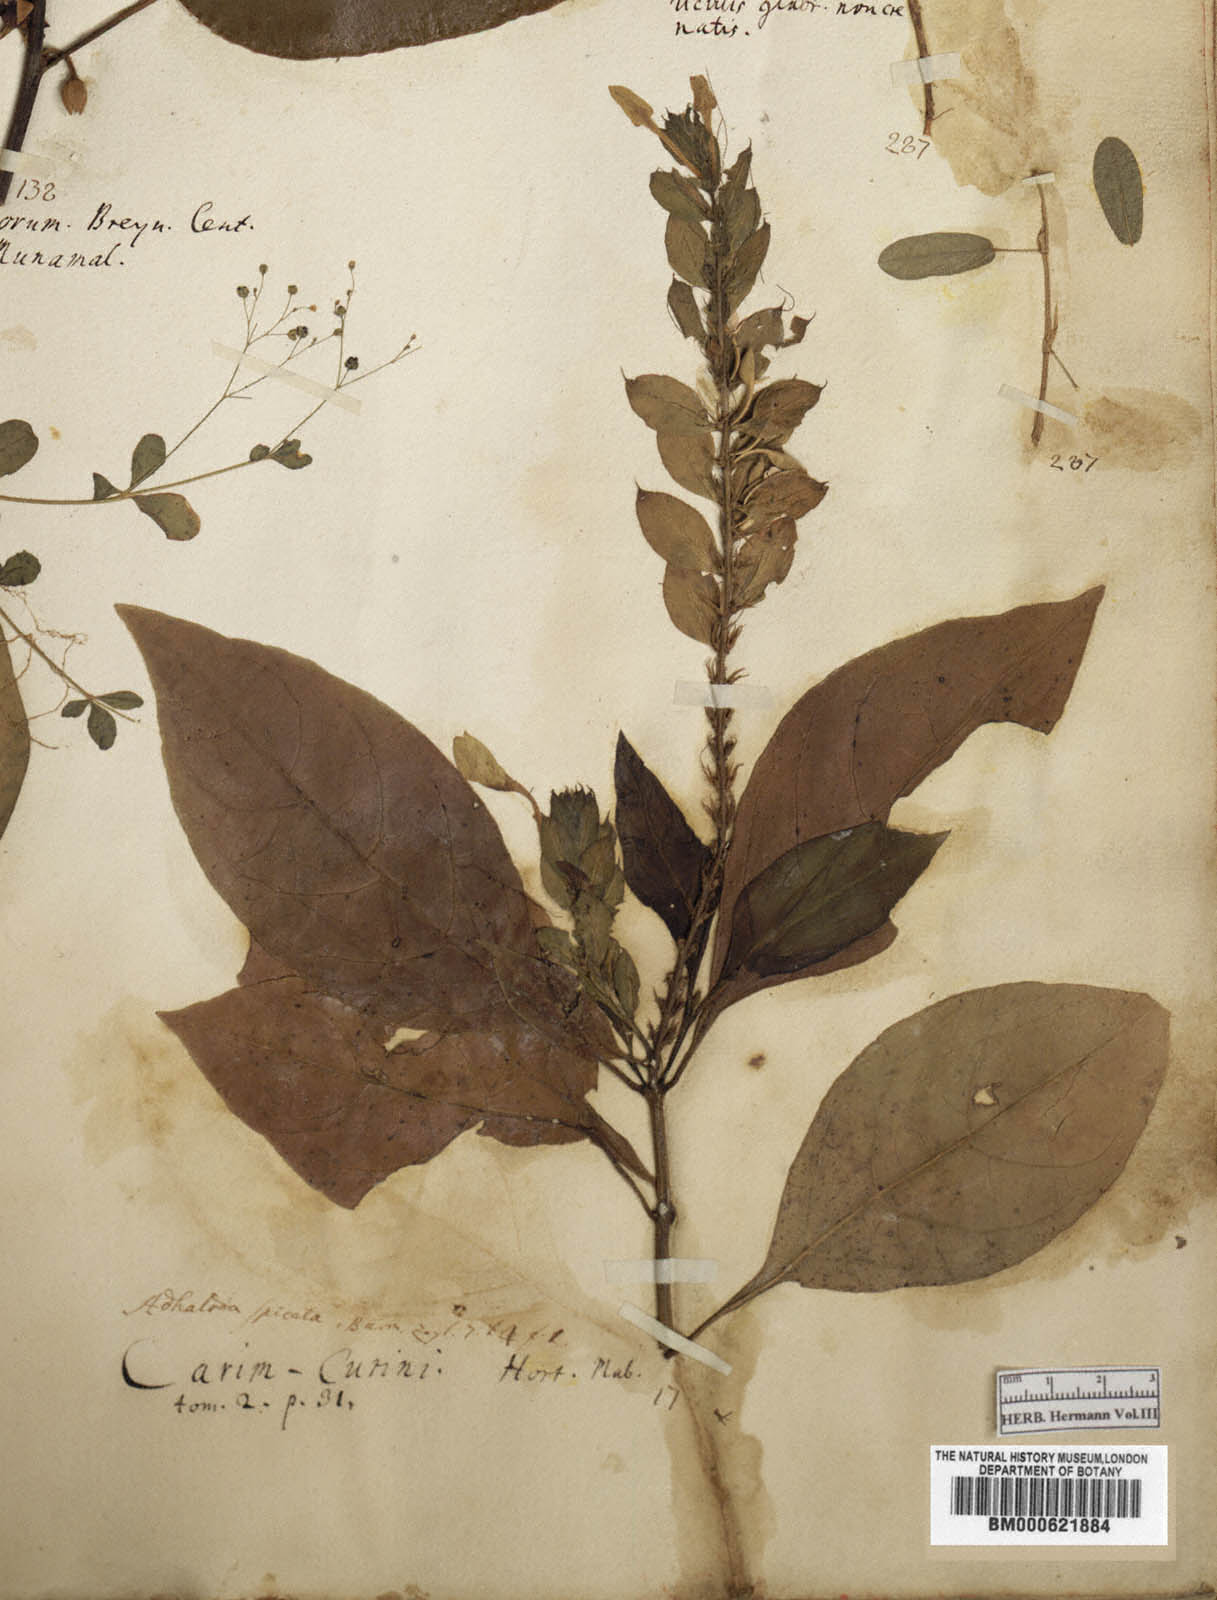 ticulis glabr. non cre
natis.
287
132
orum. Breyn. Cent.
Munamal.
287
Adhatoda spicata. Burm. zeyl. 7. t 4 f. 1.
Carim-Curini. Hort. Mab.
tom. 2. p. 31.
17
mm 1 2 3
HERB. Hermann Vol.III
THE NATURAL HISTORY MUSEUM,LONDON
DEPARTMENT OF BOTANY
BM000621884